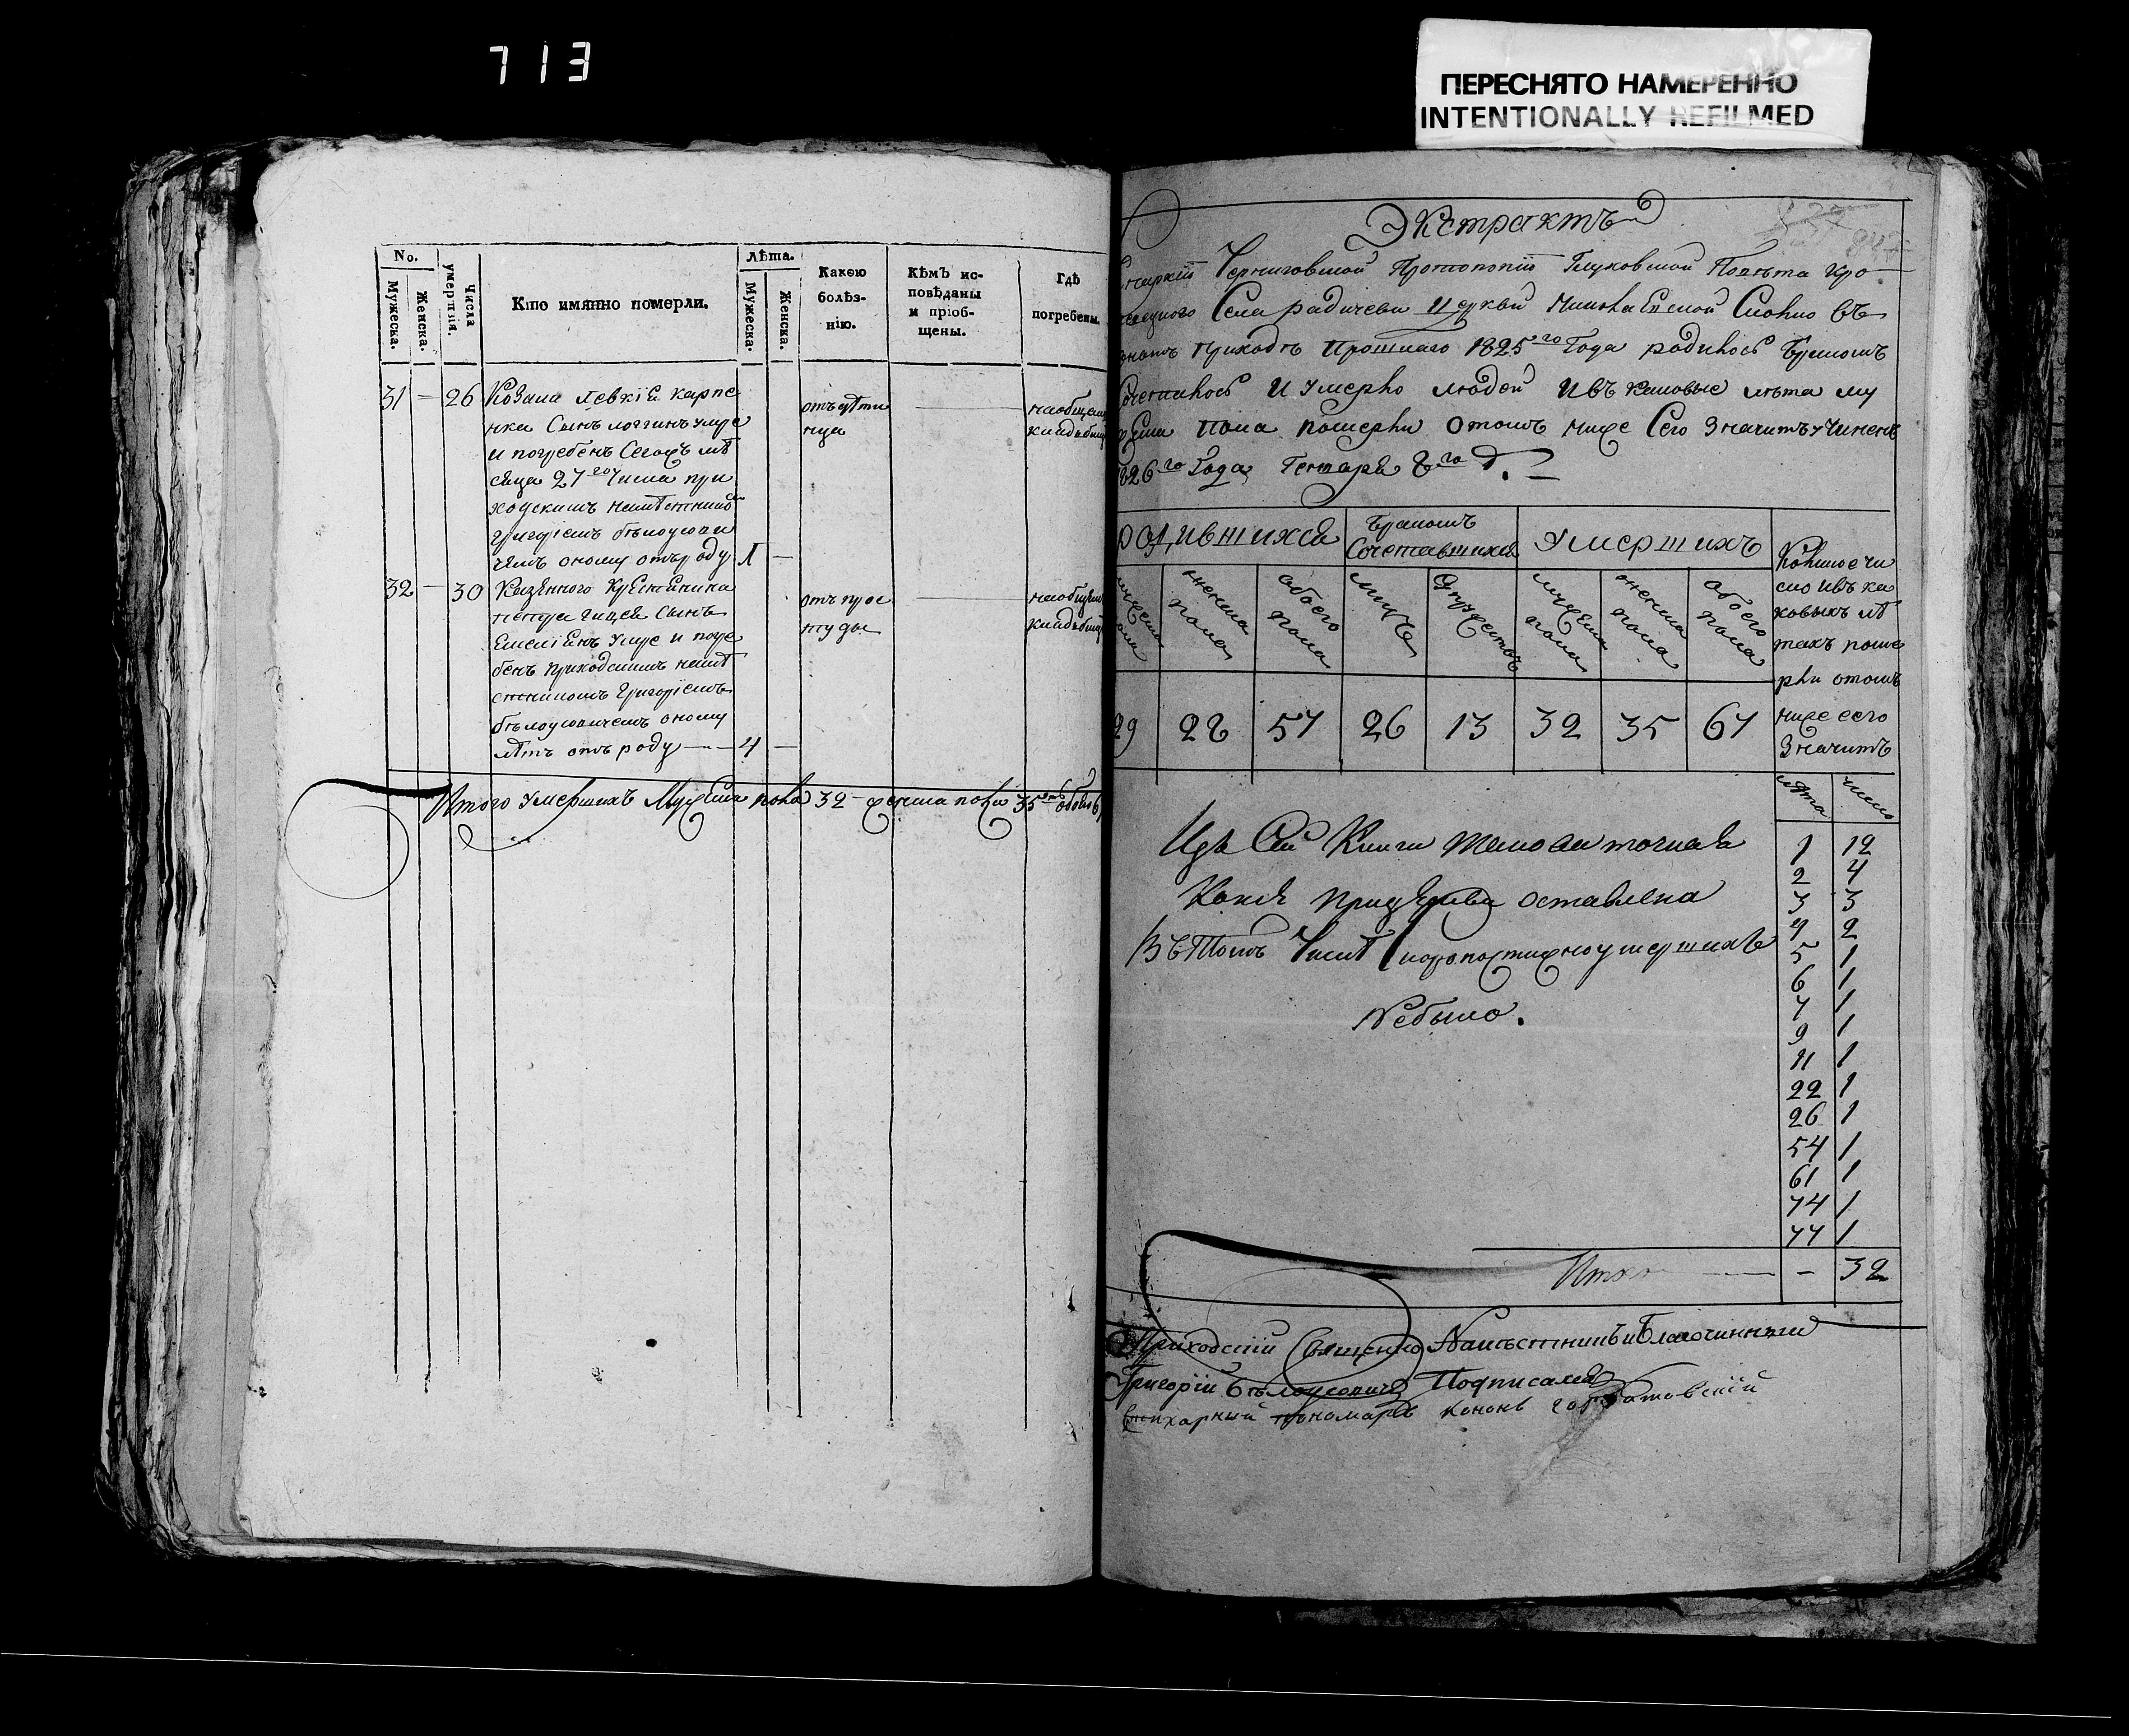 713
ПЕРЕСНЯТО НАМЕРЕННО
INTENTIONALLY REFILMED
No.
Мужеска.
Женска.
Числа умертвія.
Кто имянно померли.
Лѣта.
Мужеска.
Женска.
Какою болѣз-
нію.
Кѣмъ ис-
повѣданы
и пріоб-
щены.
Гдѣ
погребены.
31 — 26 Козака Левкіѧ карпе
нка Сынъ логгинъ умре
и погребенъ Сегожъ мѣ
сяца 27го Числа при
ходскимъ намѣстникомъ
григоріемъ бѣлоусови
чемъ оному отъ роду 1 —
32 — 30 Казенного
Сынъ
Емеліѧнъ умре и погре
бенъ приходскимъ намѣ
стникомъ Григоріемъ
бѣлоусовичемъ оному
лѣтъ отъ роду — 4 —
отъ прос
туды
Итого умершихъ Мужеска пола 32 — женска пола 35
Экстрактъ
Черниговской Протопопіи Глуховской Повѣта Кро
Села радичева церкви Николаевской Сколко въ
приходѣ Прошлаго 1825го Года родилось бракомъ
Сочеталось и умерло людей и въ каковые лѣта му
пола померли о томъ ниже Сего Значитъ учиненъ
1826го Года Генваря 8го д.
родившихся
бракомъ
Сочетавшихся
умершихъ
Коликое чи
сло и въ ка
ковыхъ лѣ
тахъ поме
рли о томъ
ниже сего
Значитъ
женска пола
обоего пола
мужеска пола
женска пола
обоего пола
29 28 57 26 13 32 35 67
лѣта число
1 12
2 4
3 3
4 2
5 1
6 1
7 1
9 1
11 1
22 1
26 1
54 1
61 1
74 1
77 1
Итого — 32
Изъ Сей Книги такова точная
Копія при церкви оставлена
Въ Томъ Числѣ Скоропостижно умершихъ
Небыло.
Приходскій Священно Намѣстникъ и Благочинный
Григорій Бѣлоусовичъ Подписался
Стихарный пономарь кононъ